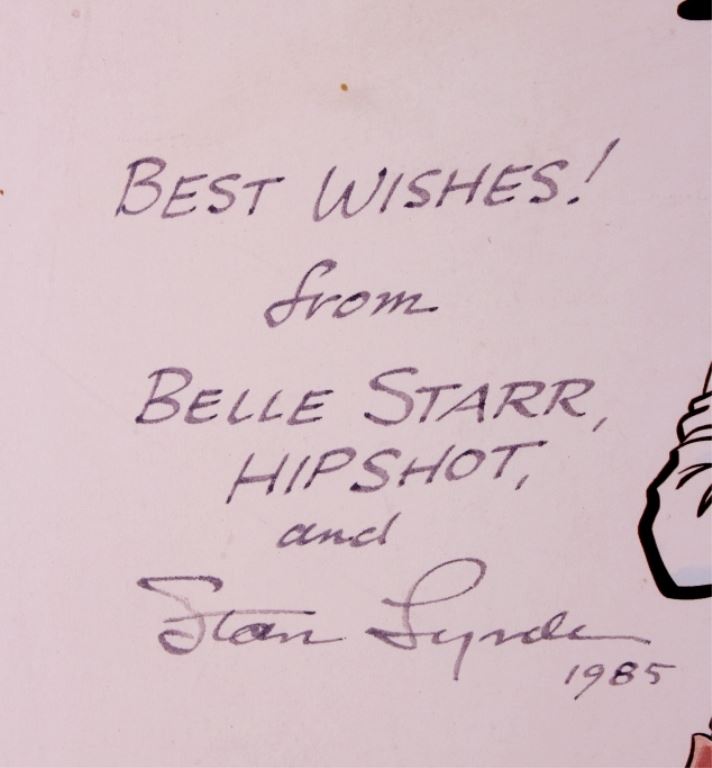 BEST WISHES!
from
BELLE STARR,
HIPSHOT,
and
Stan Lynde
1985